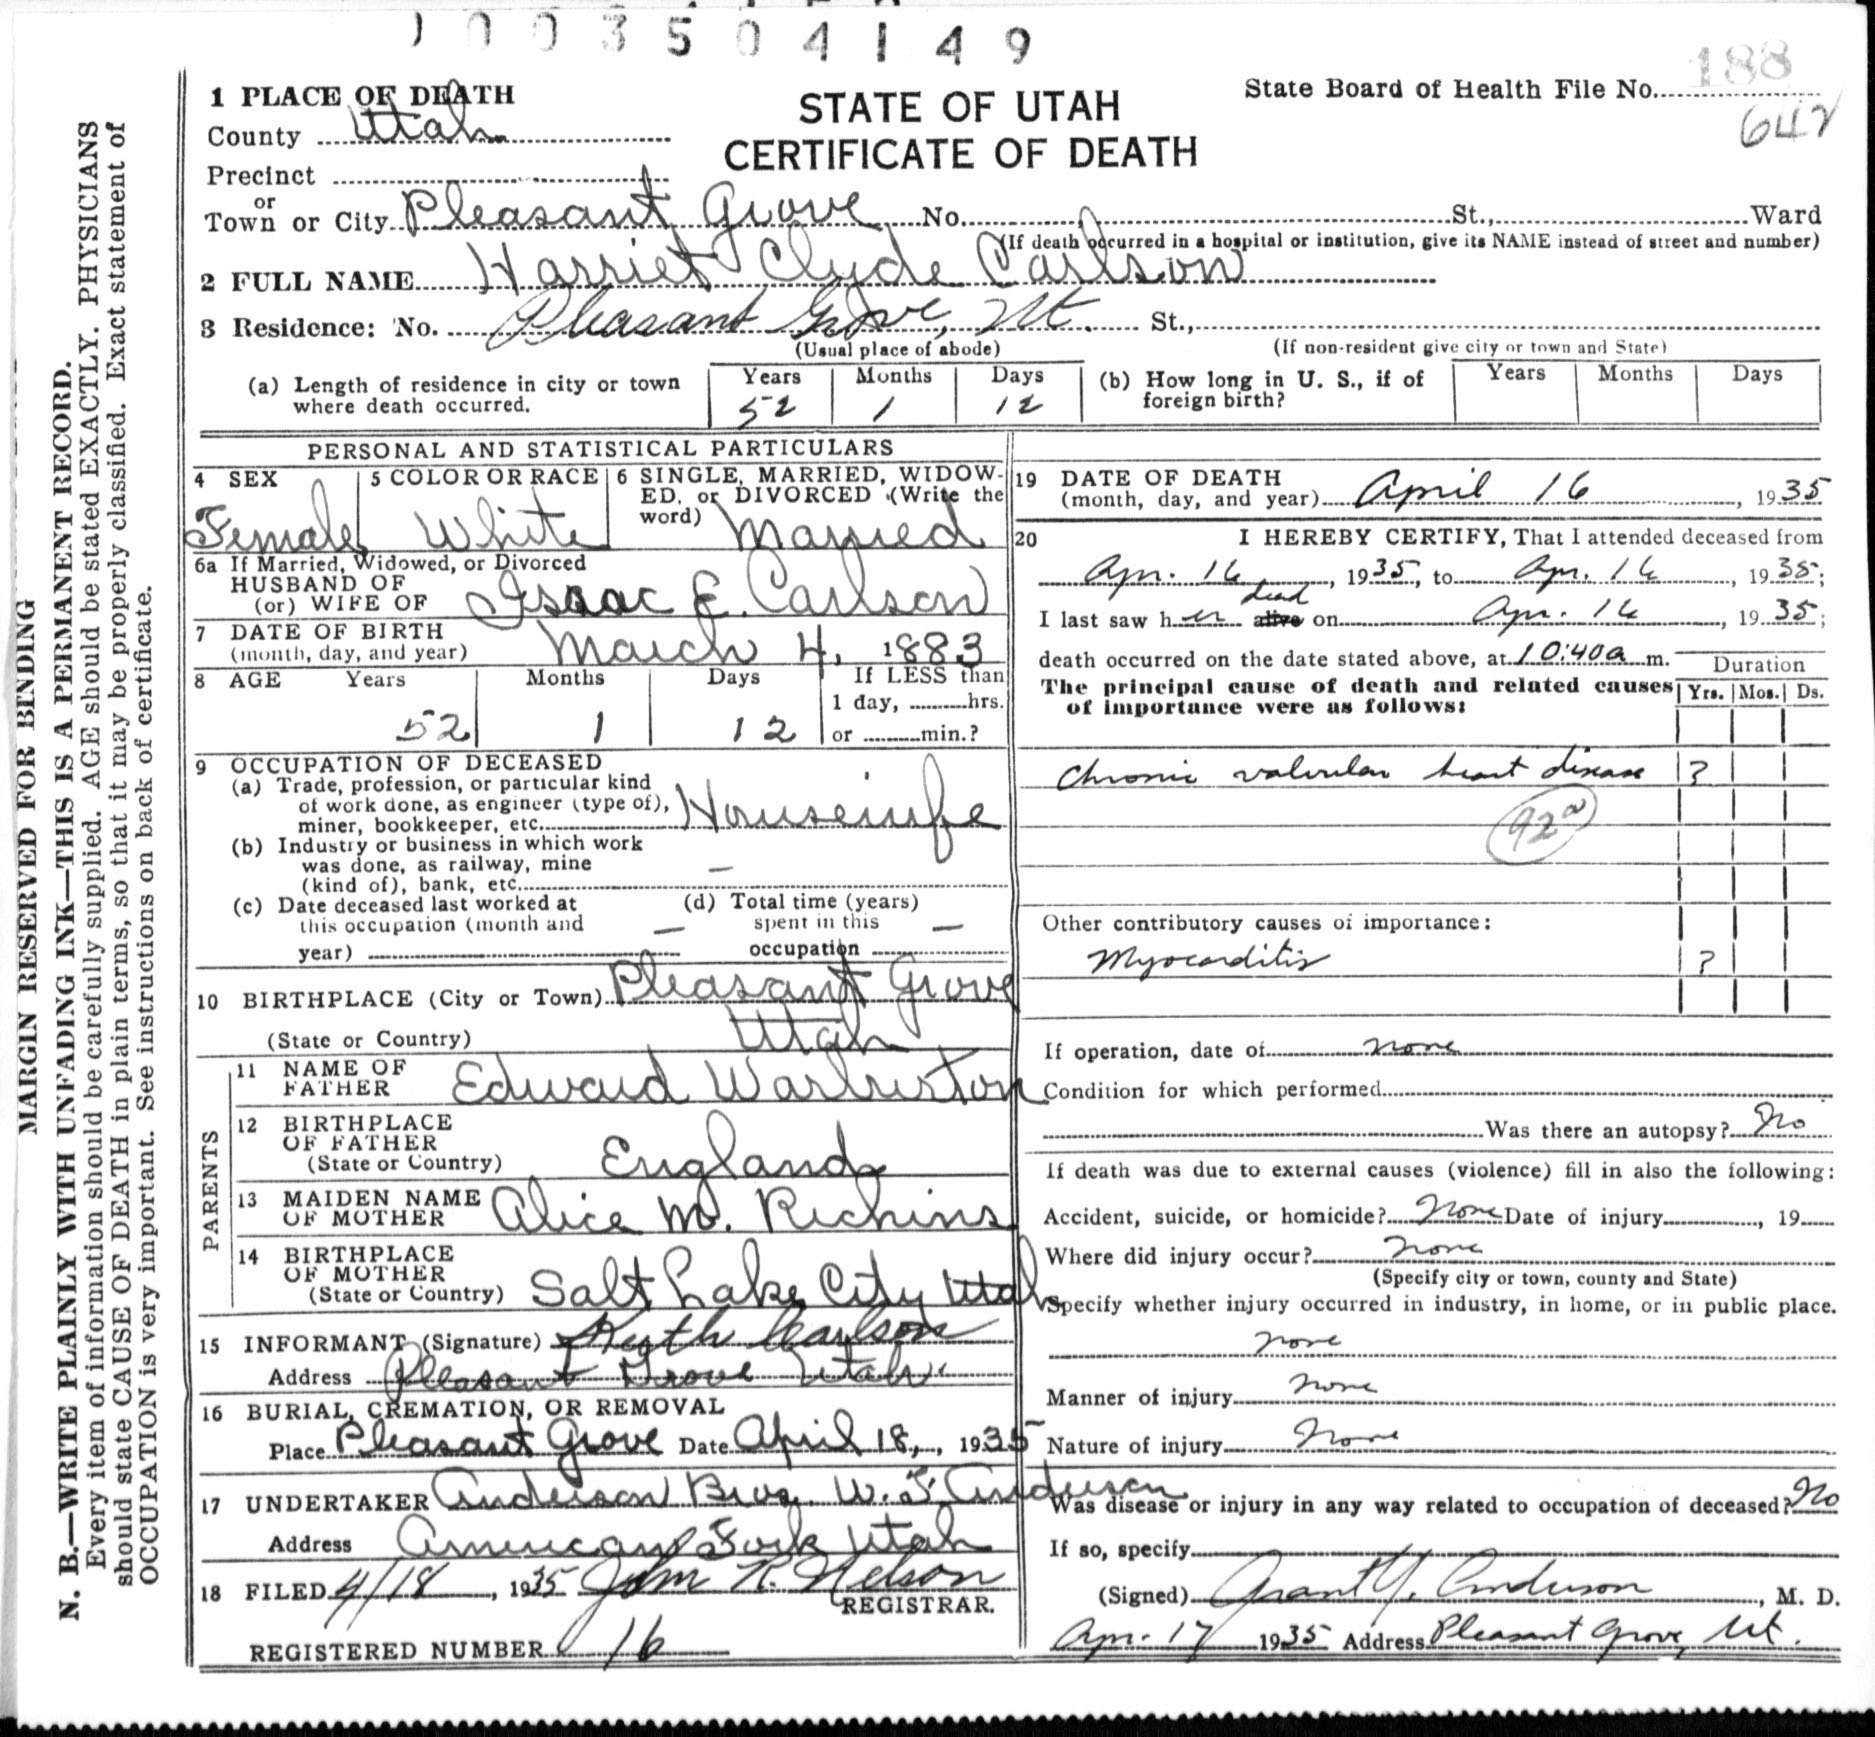 1003504149
188
State Board of Health File No.
642
STATE OF UTAH
CERTIFICATE OF DEATH
1 PLACE OF DEATH
County Utah
Precinct
or
Town or City Pleasant Grove No. St., Ward
(If death occurred in a hospital or institution, give its NAME instead of street and number)
2 FULL NAME Harriet Clyde Carlson
3 Residence: No. Pleasant Grove, Ut. St.,
(Usual place of abode) (If non-resident give city or town and State)
(a) Length of residence in city or town where death occurred. Years 52 Months 1 Days 12
(b) How long in U. S., if of foreign birth? Years Months Days
PERSONAL AND STATISTICAL PARTICULARS
4 SEX Female
5 COLOR OR RACE White
6 SINGLE, MARRIED, WIDOW-
ED, or DIVORCED (Write the
word) Married
6a If Married, Widowed, or Divorced
HUSBAND OF
(or) WIFE OF Isaac E. Carlson
7 DATE OF BIRTH
(month, day, and year) March 4, 1883
8 AGE Years 52 Months 1 Days 12 If LESS than
1 day, hrs.
or min.?
9 OCCUPATION OF DECEASED
(a) Trade, profession, or particular kind
of work done, as engineer (type of),
miner, bookkeeper, etc. Housewife
(b) Industry or business in which work
was done, as railway, mine
(kind of), bank, etc. —
(c) Date deceased last worked at
this occupation (month and
year) —
(d) Total time (years)
spent in this
occupation —
10 BIRTHPLACE (City or Town) Pleasant Grove
(State or Country) Utah
PARENTS
11 NAME OF
FATHER Edward Warburton
12 BIRTHPLACE
OF FATHER
(State or Country) England
13 MAIDEN NAME
OF MOTHER Alice M. Richins
14 BIRTHPLACE
OF MOTHER
(State or Country) Salt Lake City Utah
15 INFORMANT (Signature) Carlson
Address Pleasant Grove Utah.
16 BURIAL, CREMATION, OR REMOVAL
Place Pleasant Grove Date April 18, 1935
17 UNDERTAKER Anderson Bros. W. F. Anderson
Address American Fork Utah
18 FILED 4/18, 1935 John K. Nelson
REGISTRAR.
REGISTERED NUMBER 16
19 DATE OF DEATH
(month, day, and year) April 16, 1935
20 I HEREBY CERTIFY, That I attended deceased from
Apr. 16, 1935, to Apr. 16, 1935;
dead
I last saw her alive on Apr. 16, 1935;
death occurred on the date stated above, at 10:40a m.
Duration
The principal cause of death and related causes
of importance were as follows:
Yrs. Mos. Ds.
Chronic valvular heart disease ?
92a
Other contributory causes of importance:
Myocarditis ?
If operation, date of none
Condition for which performed
Was there an autopsy? No
If death was due to external causes (violence) fill in also the following:
Accident, suicide, or homicide? None Date of injury , 19
Where did injury occur? none
(Specify city or town, county and State)
Specify whether injury occurred in industry, in home, or in public place.
none
Manner of injury none
Nature of injury None
Was disease or injury in any way related to occupation of deceased? No
If so, specify
(Signed) Grant Y. Anderson, M. D.
Apr. 17 1935 Address Pleasant Grove, Ut.
MARGIN RESERVED FOR BINDING
N. B.—WRITE PLAINLY WITH UNFADING INK—THIS IS A PERMANENT RECORD.
Every item of information should be carefully supplied. AGE should be stated EXACTLY. PHYSICIANS
should state CAUSE OF DEATH in plain terms, so that it may be properly classified. Exact statement of
OCCUPATION is very important. See instructions on back of certificate.